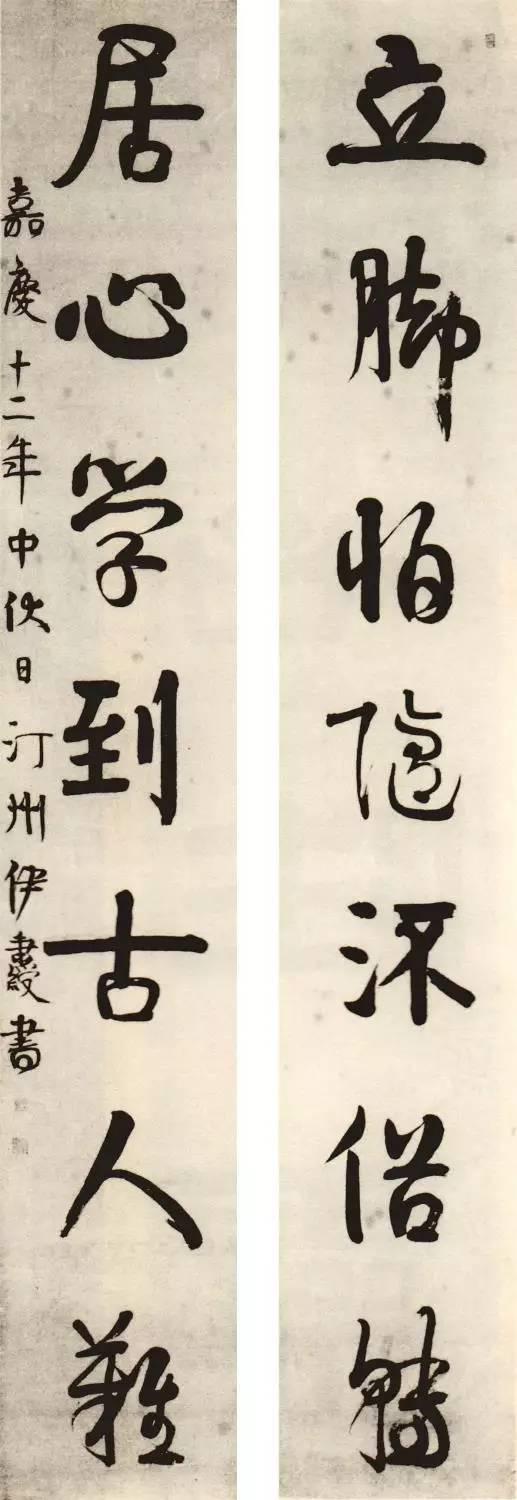 立脚怕隨流俗轉
居心学到古人難
嘉慶十二年中伏日汀州伊秉綬書